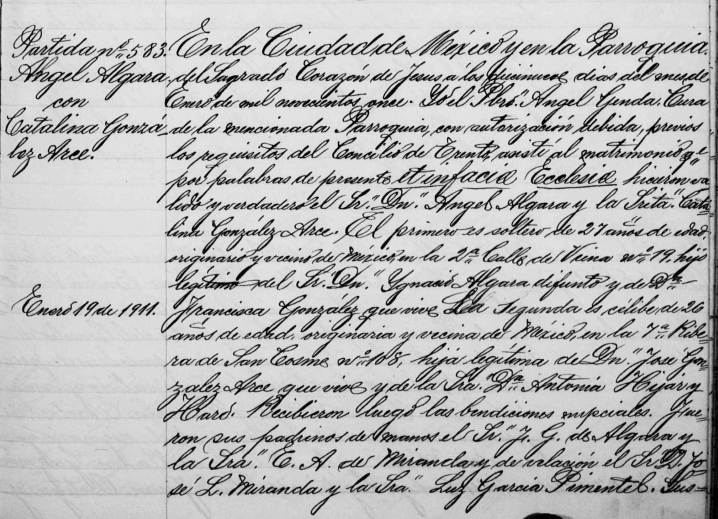 Partida nº 583.
Angel Algara
con
Catalina Gonzá-
lez Arce.
Enero 19 de 1911.
En la Ciudad de México y en la Parroquia
del Sagrado Corazón de Jesus a los diecinueve dias del mes de
Enero de mil novecientos once. Yo el Pbrō. Angel Genda Cura
de la mencionada Parroquia, con autorización debida, previos
los requisitos del Concilio de Trento, asistí al matrimonio qe
por palabras de presente et in facia Ecclesiæ hicieron va-
lido y verdadero el Sr. Dn. Angel Algara y la Srita. Cata-
lina González Arce. El primero es soltero de 27 años de edad
originario y vecino de México, en la 2ª Calle de Viena nº 19. hijo
legítimo del Sr. Dn. Ygnacio Algara difunto y de Dª
Francisca González que vive. La segunda es célibe de 26
años de edad, originaria y vecina de México, en la 7ª Ribe-
ra de San Cosme nº 108, hija legítima de Dn. José Gon-
zalez Arce que vive y de la Sra. Dª Antonia Hijar y
Haro. Recibieron luego las bendiciones nupciales. Fue-
ron sus padrinos de manos el Sr. J. G. de Algara y
la Sra. E. A. de Miranda y de velación el Sr. D. Jo-
sé L. Miranda y la Sra. Luz Garcia Pimentel. Sus-